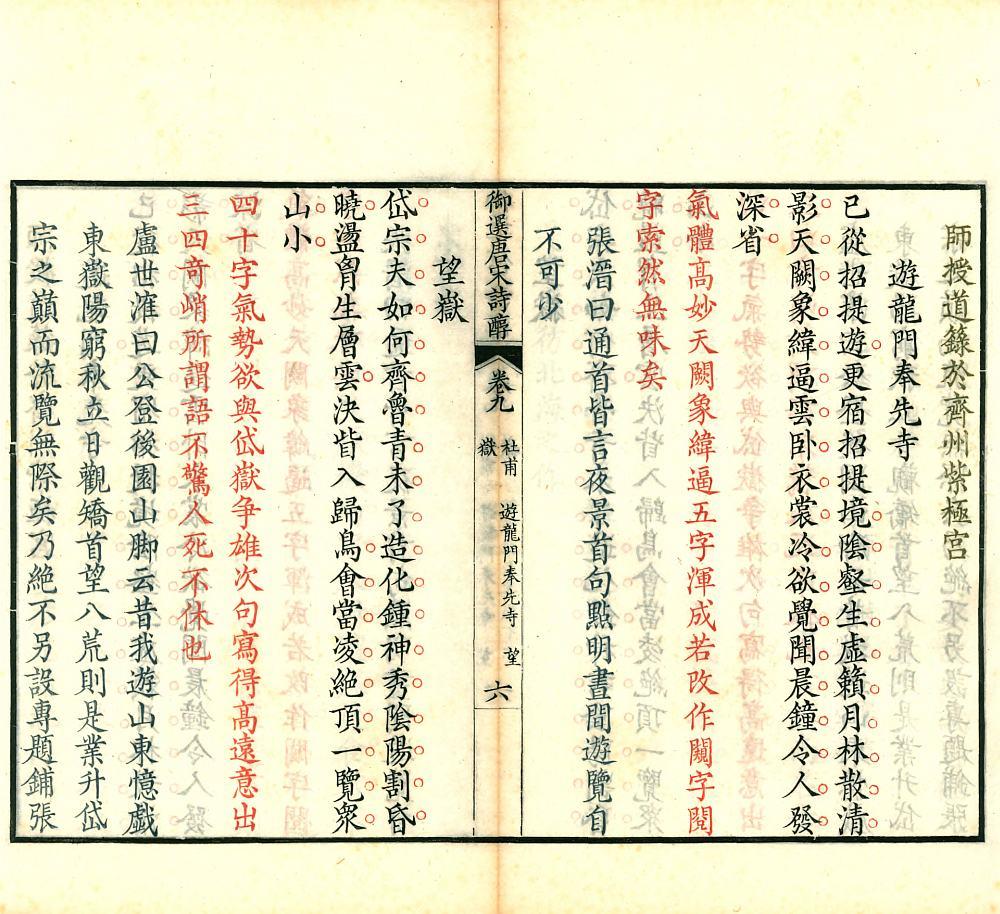 師授道籙於齊州紫極宮
遊龍門奉先寺
已從招提遊更宿招提境陰壑生虛籟月林散清
影天闕象緯逼雲卧衣裳冷欲覺聞晨鐘令人發
深省
氣體髙妙天闕象緯逼五字渾成若改作闚字閱
字索然無味矣
張溍曰通首皆言夜景首句點明晝間遊覽自
不可少
御選唐宋詩醇
卷九
杜甫 遊龍門奉先寺 望
嶽
六
望嶽
岱宗夫如何齊魯青未了造化鍾神秀陰陽割昏
曉盪胷生層雲決眥入歸鳥會當凌絶頂一覽衆
山小
四十字氣勢欲與岱嶽争雄次句寫得髙遠意出
三四竒峭所謂語不驚人死不休也
盧世㴶曰公登後園山脚云昔我遊山東憶戲
東嶽陽窮秋立日觀矯首望八荒則是業升岱
宗之巔而流覽無際矣乃絶不另設專題鋪張